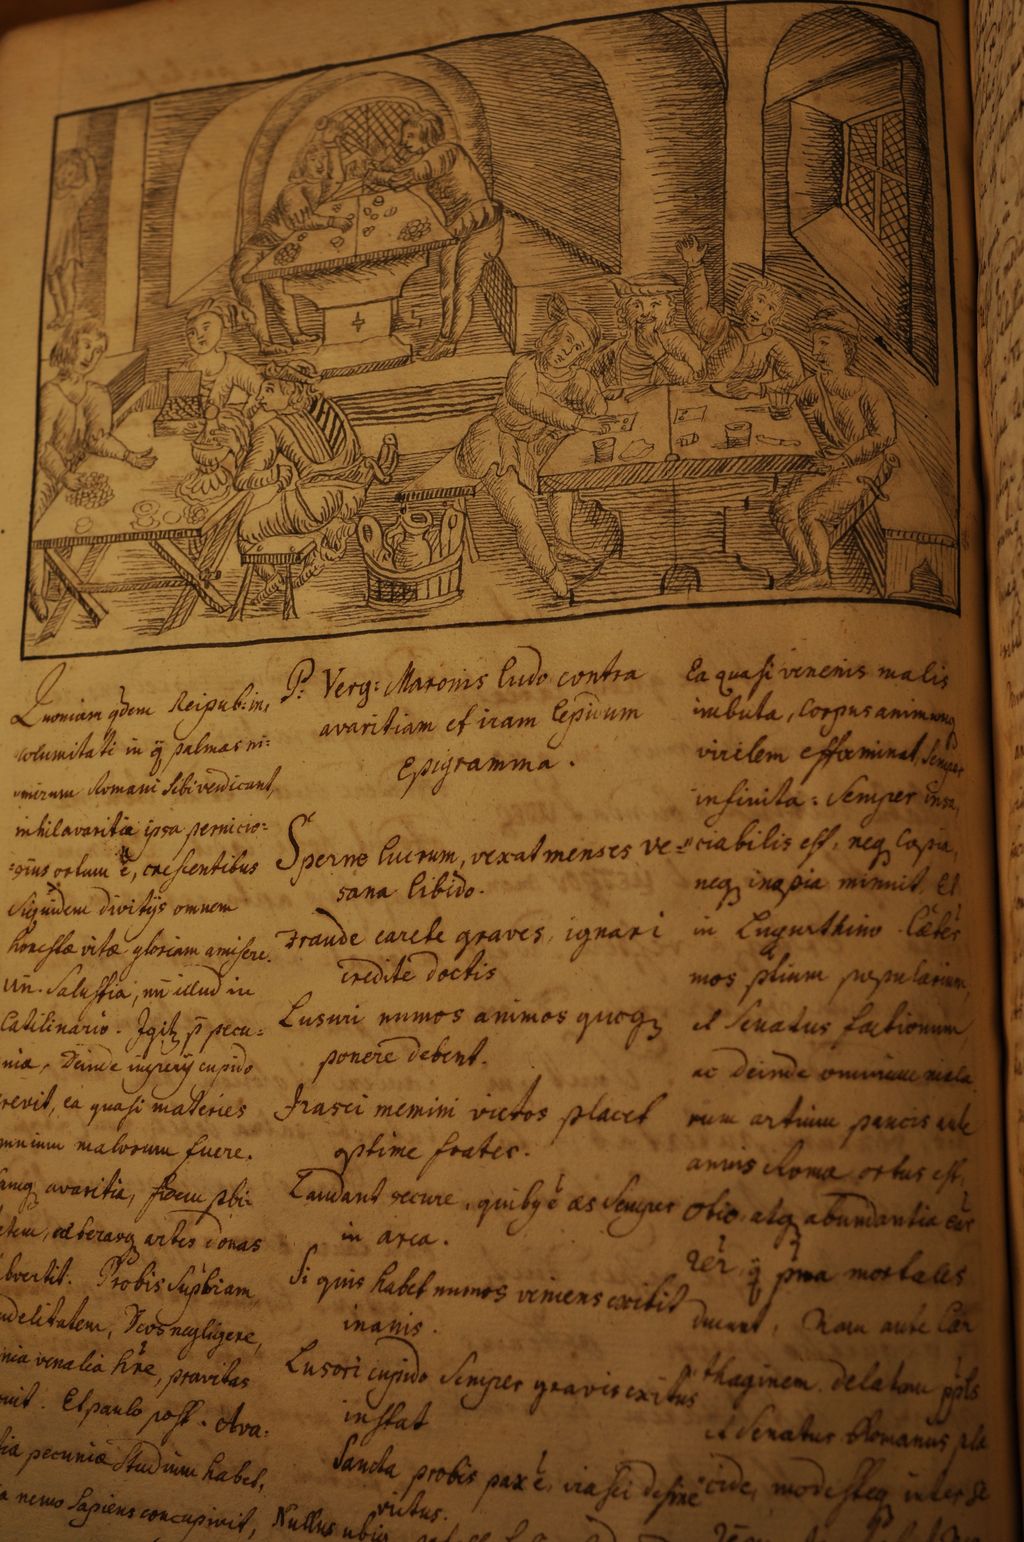 Quoniam qdem Reipub: in,
columitati in q̃ palmas ni=
mirum Romani sibi vendicant,
nihil avaritia ipsa pernicio=
ortum ẽ, crescentibus
siquidem divitijs omnem
honestæ vitæ gloriam amisere.
Uñ. Salustia, illud in
Catilinario. Igitr p̃ pecu=
niæ, Deinde imperij cupido
crevit, ea quasi materies
omnium malorum fuere.
Namq avaritia, fidem pbi
tatem, cæterasq artes bonas
Probis supbiam,
crudelitatem, Deos negligere,
omnia venalia hr̃e, pravitas
Et paulo post. Ava:
ritia pecuniæ studium habet,
quā nemo sapiens concupivit,
P: Verg: Maronis ludo contra
avaritiam et iram lepidum
Epigramma.
Sperne lucrum, vexat menses ve=
sana libido.
Fraude carete graves, ignari
credite doctis
Lusuri numos animos quoq
ponere debent.
Irasci memini victos placet
optime frater.
Laudant secure, quibq ẽ æs semper
in arca.
Si quis habet numos veniens exibit
inanis.
Lusori cupido semper gravis exitus
instat
Sancta probis pax ẽ, irasci desine
victus.
Nullus ubiq
Ea quasi venenis malis
imbuta, corpus animumq
virilem effœminat, semper
infinita: semper insa,
ciabilis est, neq copia,
neq inopia minuit. Et
in Iugurthino. Cæter
mos ptium popularium,
et senatus factionum
ac deinde omnium mala
rum artium paucis ante
annis Romæ ortus est,
otio, atq abundantia ear
rer̃ q̃ pma mortales
ducunt. Nam ante Car
thaginem delatam ppls
et Senatus Romanus pla
cide, modesteq inter se